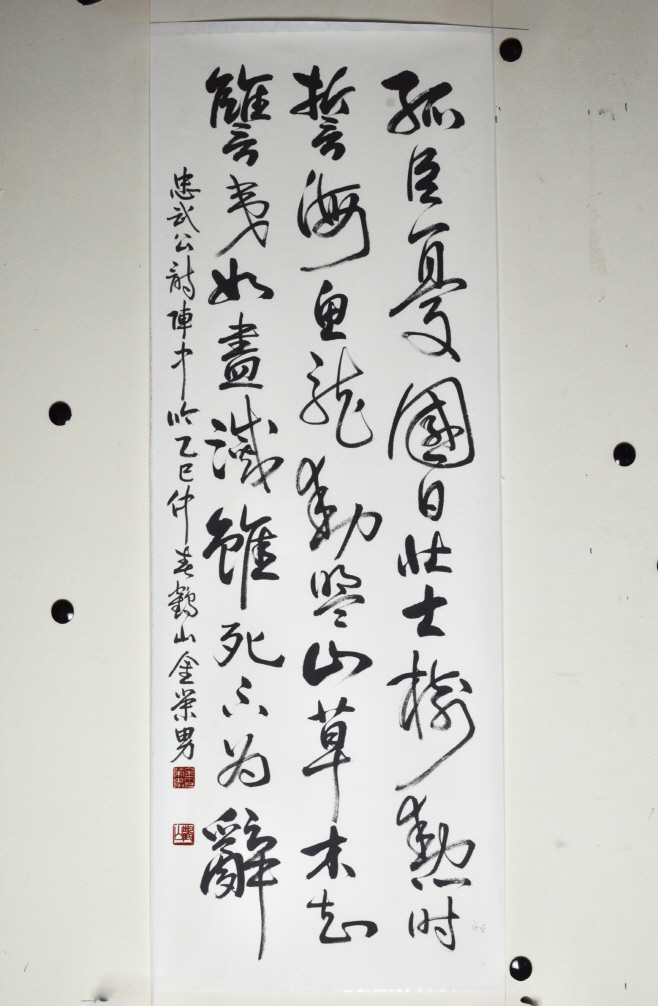 孤臣憂國日壯士樹勳时
誓海魚龍動盟山草木知
讐夷如盡滅雖死不为辭
忠武公詩陣中吟乙巳仲春鶴山金榮男